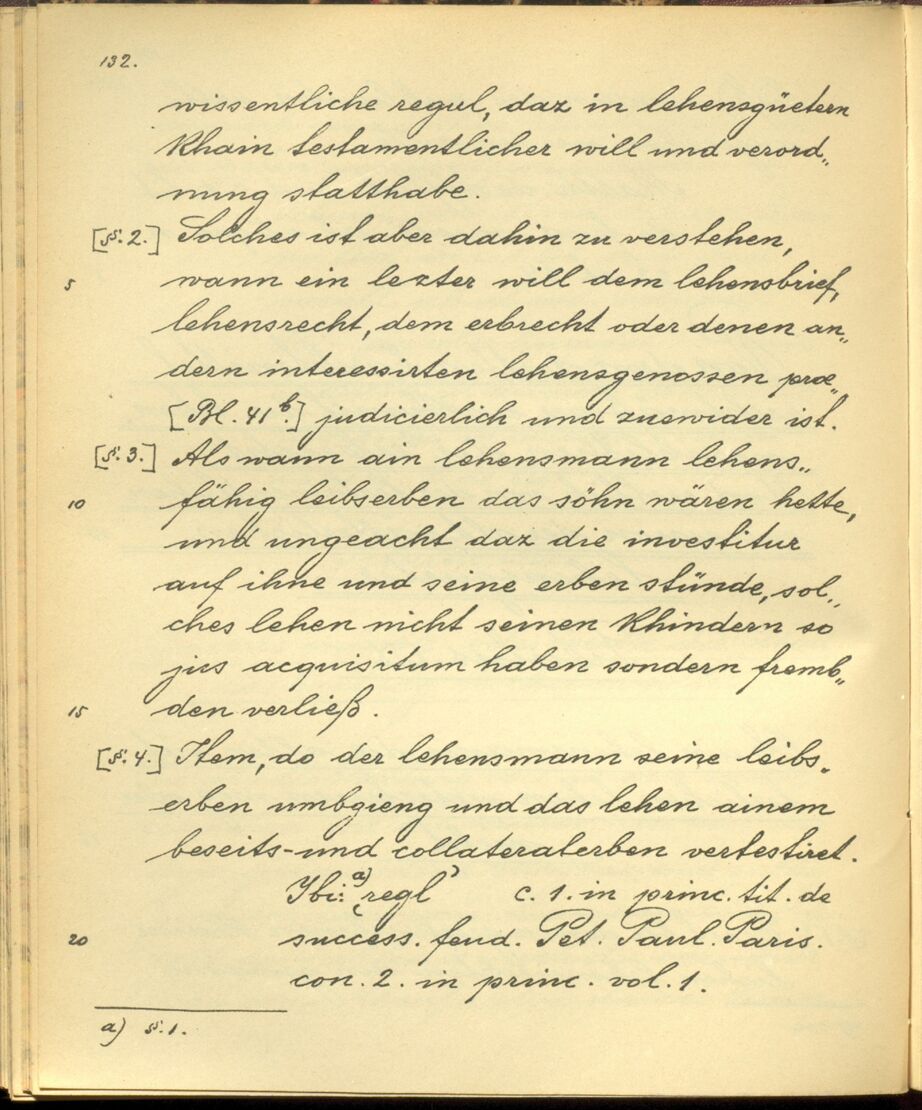 132.
wissentliche regul, daz in lehensgüetern
khain testamentlicher will und verord„
nung statthabe.
[§. 2.] Solches ist aber dahin zu verstehen,
5 wann ein lezter will dem lehensbrief,
lehensrecht, dem erbrecht oder denen an„
dern interessirten lehensgenossen præ„
[Bl. 41b.] judicierlich und zuewider ist.
[§. 3.] Als wann ain lehensmann lehens„
10 fähig leibserben das söhn wären hette,
und ungeacht daz die investitur
auf ihne und seine erben stünde, sol„
ches lehen nicht seinen khindern so
jus acquisitum haben sondern fremb„
15 den verließ.
[§. 4.] Item, do der lehensmann seine leibs„
erben umbgieng und das lehen ainem
beseits- und collateralerben vertestiret.
Ibi: a) regl c. 1. in princ. tit. de
20 success. feud. Pet. Paul. Paris.
con. 2. in princ. vol. 1.
a) §. 1.